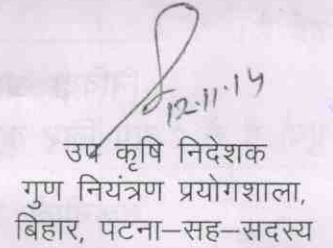 12.11.14
उप कृषि निदेशक
गुण नियंत्रण प्रयोगशाला,
बिहार, पटना–सह–सदस्य